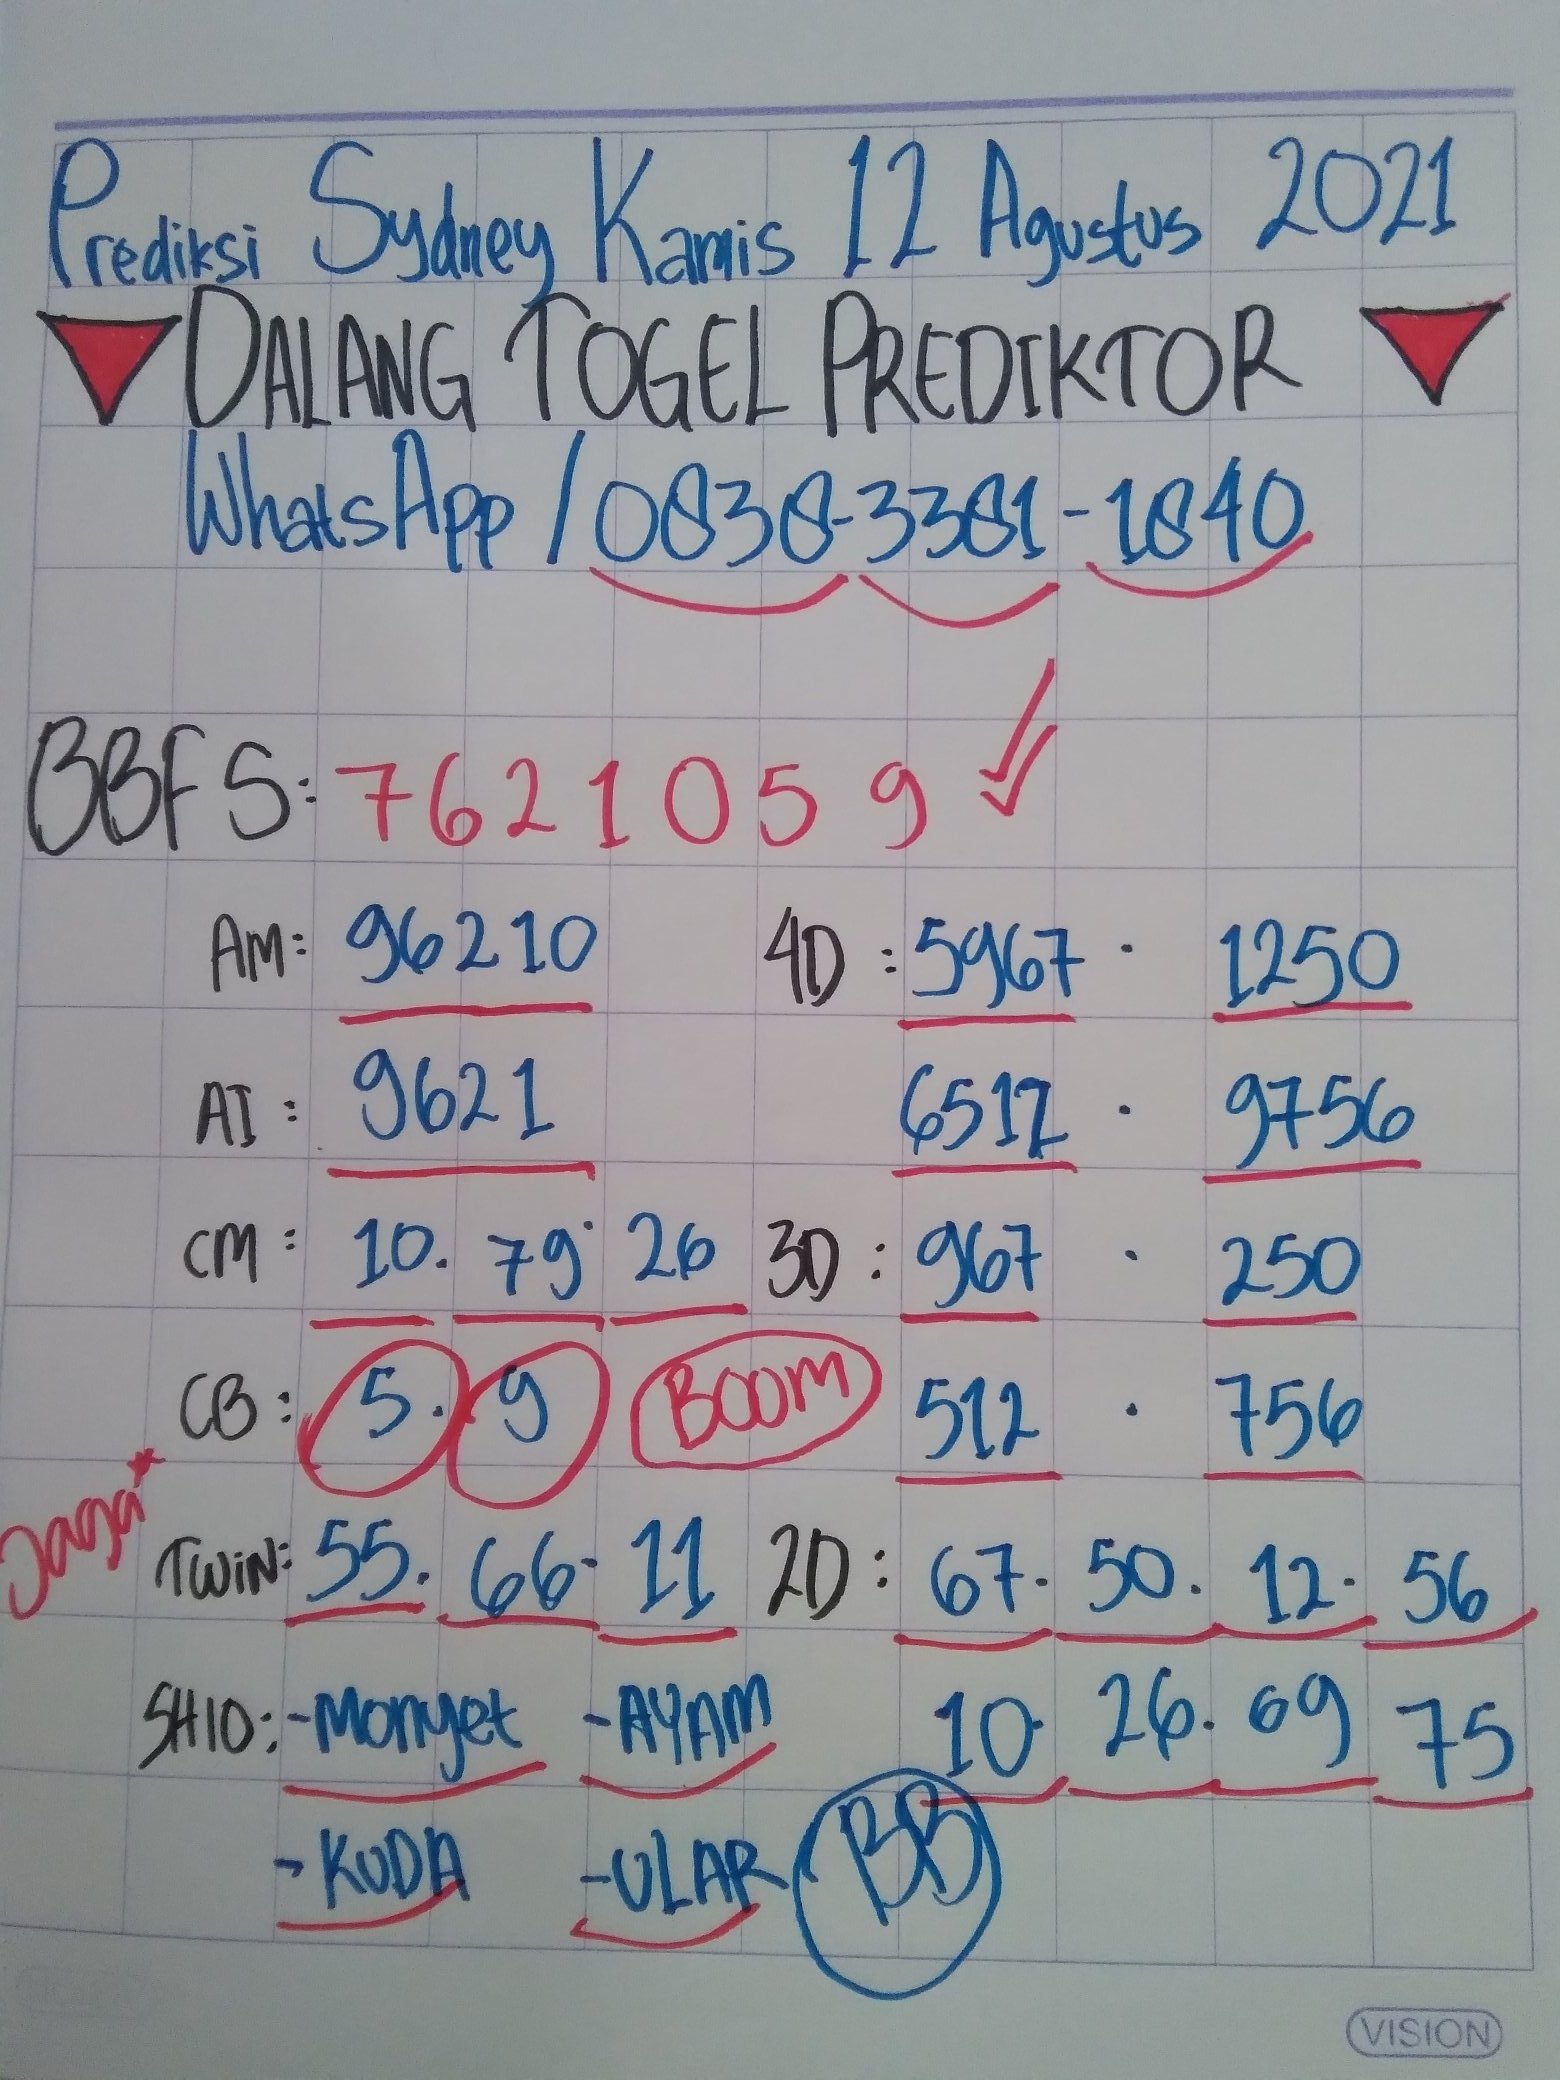 Prediksi Sydney Kamis 12 Agustus 2021
DALANG TOGEL PREDIKTOR
WhatsApp / 0838-3381-1840
BBFS: 7621059
AM: 96210 4D: 5967 · 1250
AI: 9621 6512 · 9756
CM: 10. 79· 26 3D: 967 · 250
CB: 5. 9 BOOM 512 · 756
Jaga*
TWiN: 55. 66· 11 2D: 67· 50. 12· 56
SHIO: -Monyet -AYAM 10· 26. 09 75
-KUDA -ULAR BB
VISION